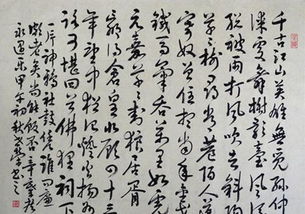 千古江山英雄無覓孫仲
謀處舞榭歌臺風流
總被雨打風吹去斜陽
草樹尋常巷陌人道
寄奴曾住想當年金戈
鐵馬氣吞萬里如虎
元嘉草草封狼居胥
贏得倉皇北顧四十三
年望中猶記燈火揚州
路可堪回首佛狸祠下
一片神鴉社鼓憑誰問廉
頗老矣尚能飯否辛棄疾
永遇樂甲子初秋書之